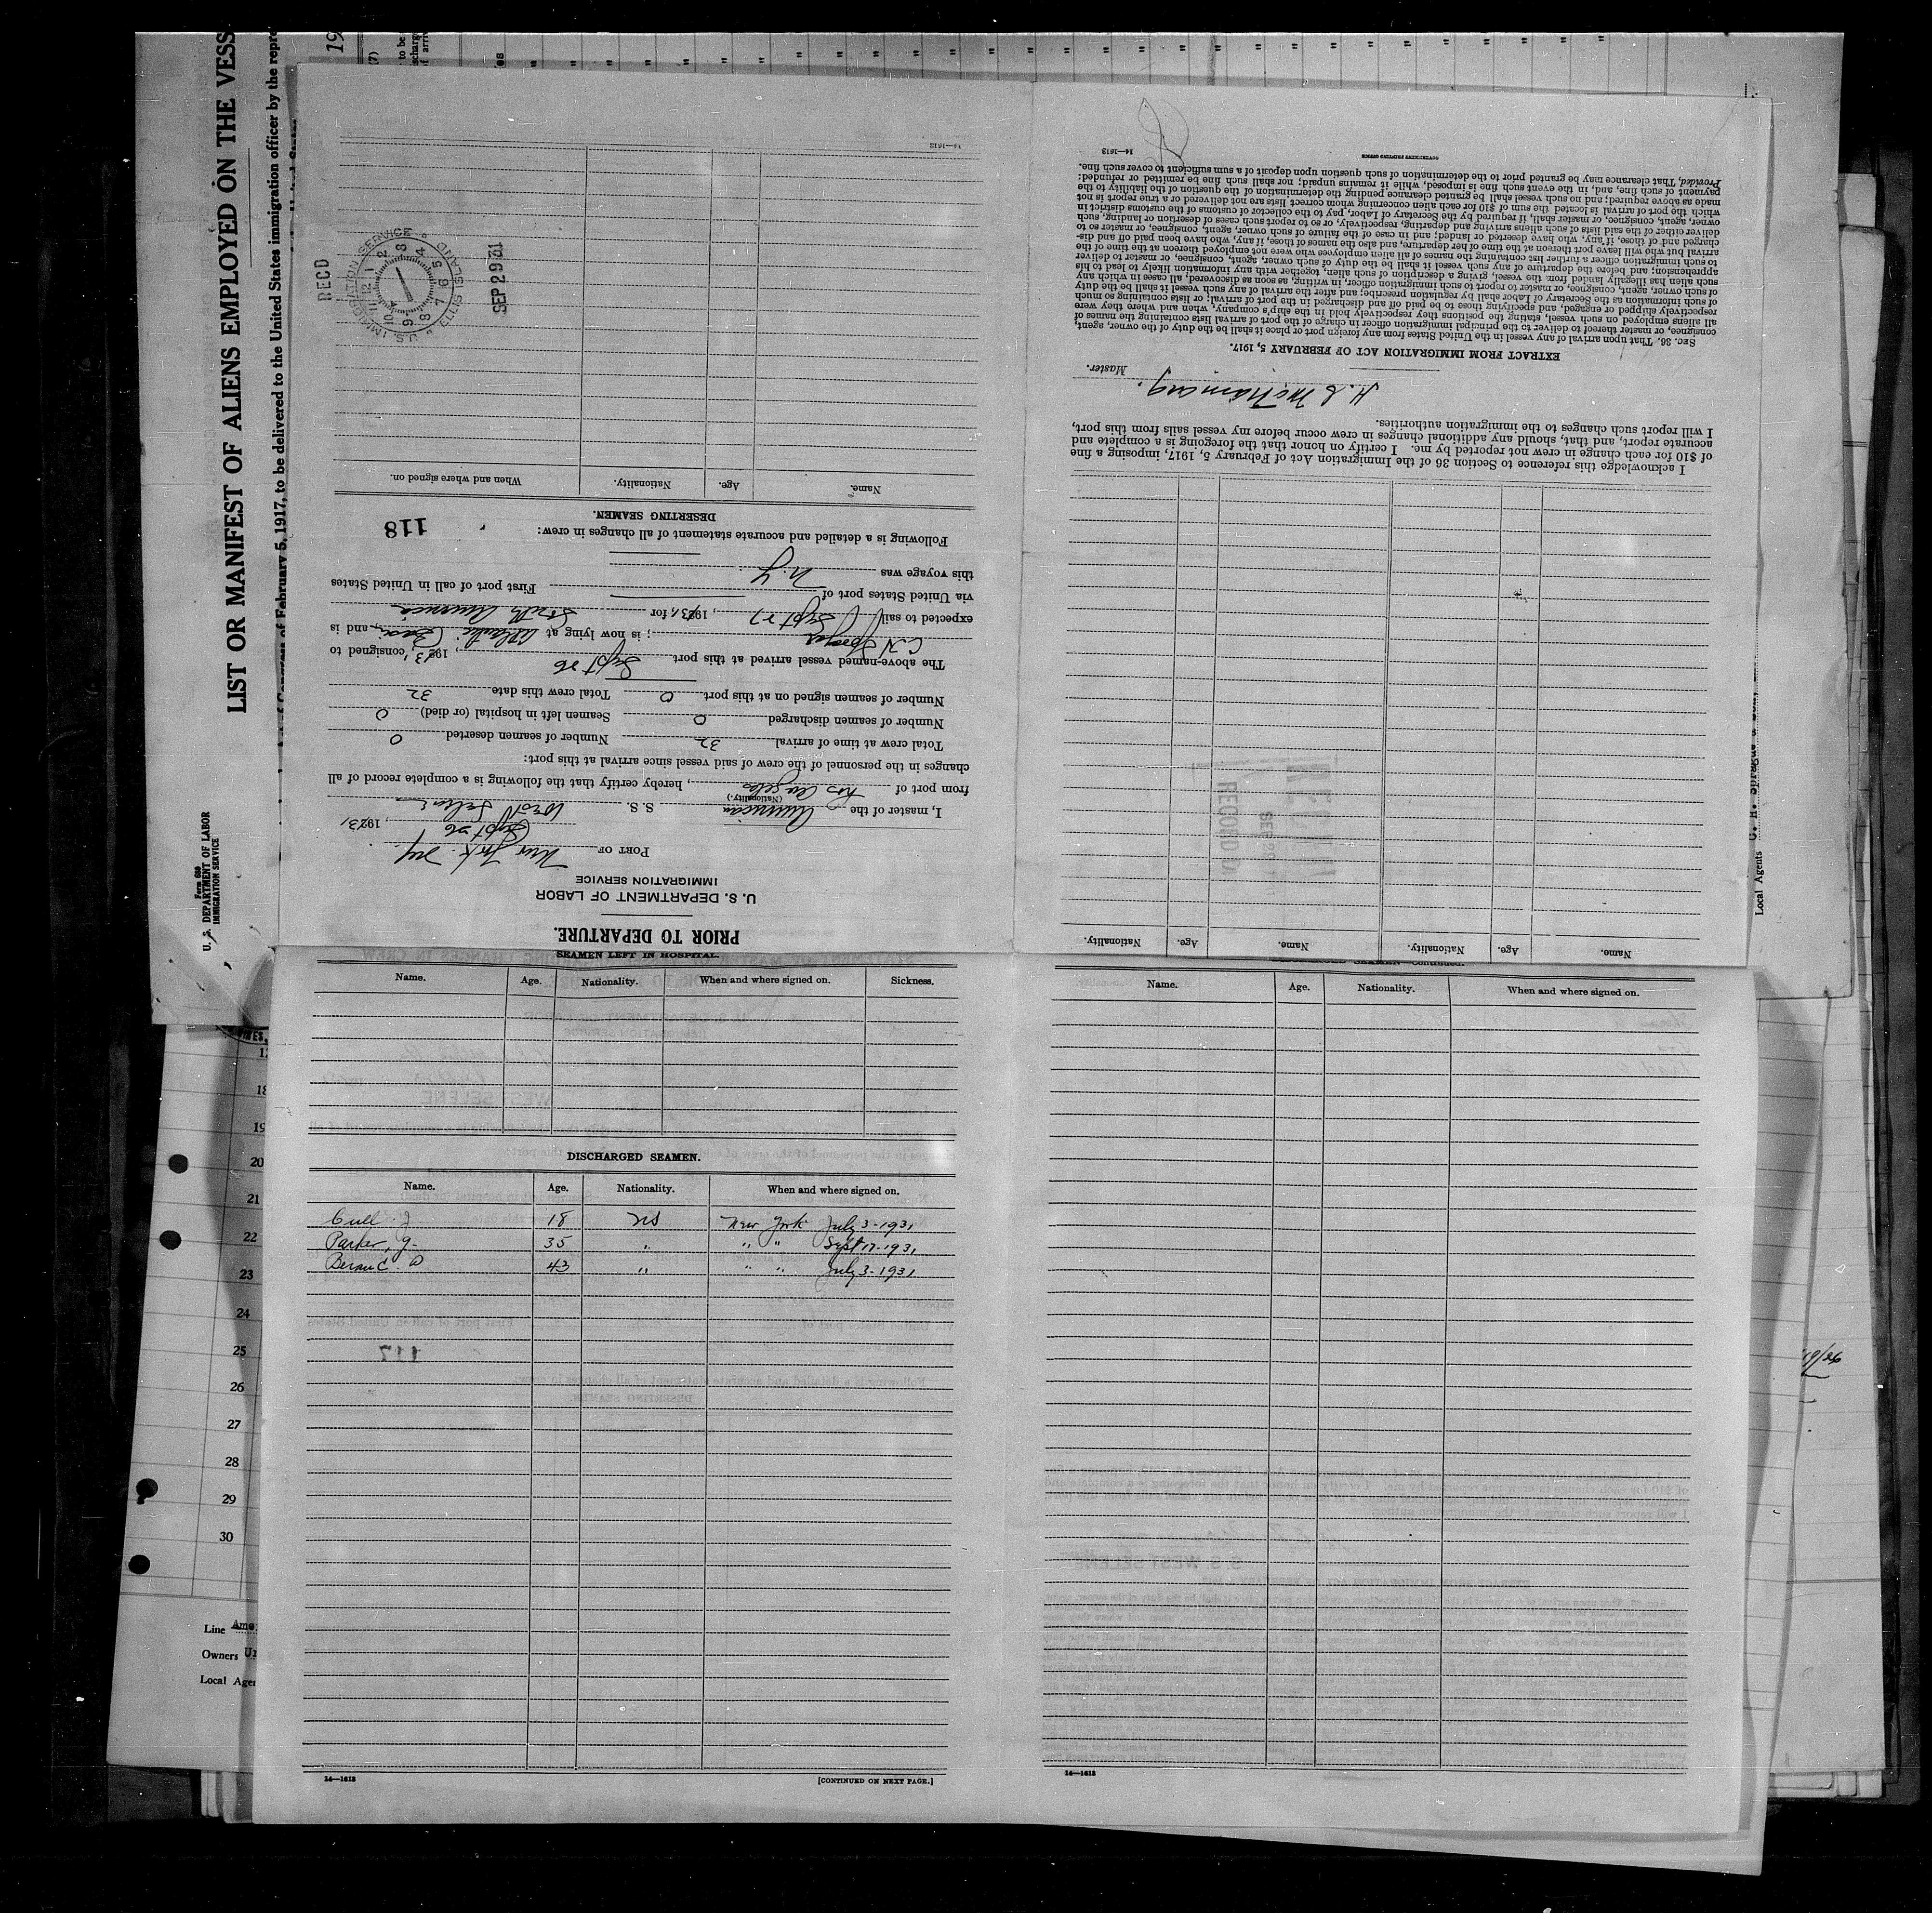 LIST OR MANIFEST OF ALIENS EMPLOYED ON THE VESS
of February 5, 1917, to be delivered to the United States immigration officer by the repre
Form 686
U. S. DEPARTMENT OF LABOR
IMMIGRATION SERVICE
PRIOR TO DEPARTURE.
U. S. DEPARTMENT OF LABOR
IMMIGRATION SERVICE
PORT OF New York NY
Sept 26, 1931
I, master of the American S. S. West Selene
(Nationality.)
from port of Los Angeles, hereby certify that the following is a complete record of all
changes in the personnel of the crew of said vessel since arrival at this port:
Total crew at time of arrival 32 Number of seamen deserted 0
Number of seamen discharged 0 Seamen left in hospital (or died) 0
Number of seamen signed on at this port 0 Total crew this date 32
The above-named vessel arrived at this port Sept 26, 1931, consigned to
C. H.; is now lying at Atlantic Basin, and is
expected to sail Sept 27, 1931, for South America
via United States port of First port of call in United States
this voyage was N.Y
Following is a detailed and accurate statement of all changes in crew:
118
DESERTING SEAMEN.
Name. Age. Nationality. When and where signed on.
RECD
U.S. IMMIGRATION SERVICE ELLIS ISLAND
12 1 2 3 4 5 6 7 8 9 10 11
SEP 29 31
14—1613
Name. Age. Nationality. Name. Age. Nationality.
RECORD
I acknowledge this reference to Section 36 of the Immigration Act of February 5, 1917, imposing a fine
of $10 for each change in crew not reported by me. I certify on honor that the foregoing is a complete and
accurate report, and that, should any additional changes in crew occur before my vessel sails from this port,
I will report such changes to the immigration authorities.
Master.
EXTRACT FROM IMMIGRATION ACT OF FEBRUARY 5, 1917.
SEC. 36. That upon arrival of any vessel in the United States from any foreign port or place it shall be the duty of the owner, agent,
consignee, or master thereof to deliver to the principal immigration officer in charge of the port of arrival lists containing the names of
all aliens employed on such vessel, stating the positions they respectively hold in the ship's company, when and where they were
respectively shipped or engaged, and specifying those to be paid off and discharged in the port of arrival; or lists containing so much
of such information as the Secretary of Labor shall by regulation prescribe; and after the arrival of any such vessel it shall be the duty
of such owner, agent, consignee, or master to report to such immigration officer, in writing, as soon as discovered, all cases in which any
such alien has illegally landed from the vessel, giving a description of such alien, together with any information likely to lead to his
apprehension; and before the departure of any such vessel it shall be the duty of such owner, agent, consignee, or master to deliver
to such immigration officer a further list containing the names of all alien employees who were not employed thereon at the time of the
arrival but who will leave port thereon at the time of her departure, and also the names of those, if any, who have been paid off and dis-
charged and of those, if any, who have deserted or landed; and in case of the failure of such owner, agent, consignee, or master to
deliver either of the said lists of such aliens arriving and departing, respectively, or so to report such cases of desertion or landing, such
owner, agent, consignee, or master shall, if required by the Secretary of Labor, pay to the collector of customs of the customs district in
which the port of arrival is located the sum of $10 for each alien concerning whom correct lists are not delivered or a true report is not
made as above required; and no such vessel shall be granted clearance pending the determination of the question of the liability to the
payment of such fine, and, in the event such fine is imposed, while it remains unpaid; nor shall such fine be remitted or refunded:
Provided, That clearance may be granted prior to the determination of such question upon deposit of a sum sufficient to cover such fine.
GOVERNMENT PRINTING OFFICE 14—1613
Local Agents C. H. Sprague
SEAMEN LEFT IN HOSPITAL.
Name. Age. Nationality. When and where signed on. Sickness.
DISCHARGED SEAMEN.
Name. Age. Nationality. When and where signed on.
Cull J 18 US New York July 3-1931
Parker, G. 35 " " " Sept 17-1931
43 " " " July 3-1931
117
14—1613 [CONTINUED ON NEXT PAGE.]
Name. Age. Nationality. When and where signed on.
WEST SELENE
S. S. WEST SELENE
14—1613
18
19
20
21
22
23
24
25
26
27
28
29
30
Line Ame
Owners
Local Agen